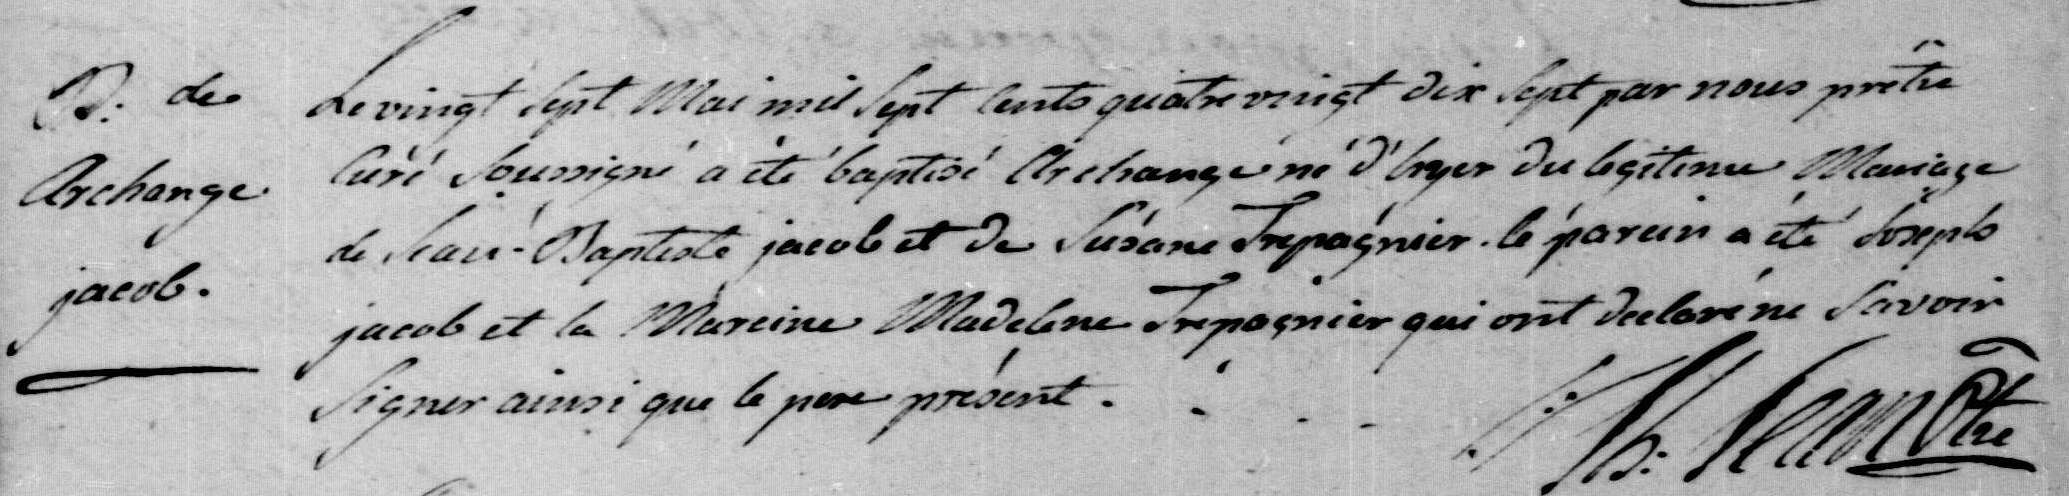 B. de
Archange
jacob.
Le vingt Sept Mai mil Sept Cents quatre vingt dix Sept par nous prêtre
Curé Soussigné a été baptisé Archange né d'hyer du legitime Mariage
de Jean-Baptiste jacob et de Susane Trepagnier. le parein a été Joseph
jacob et la Mareine Madelene Trepagnier qui ont declaré ne Savoir
Signer ainsi que le pere présent.
Ptre